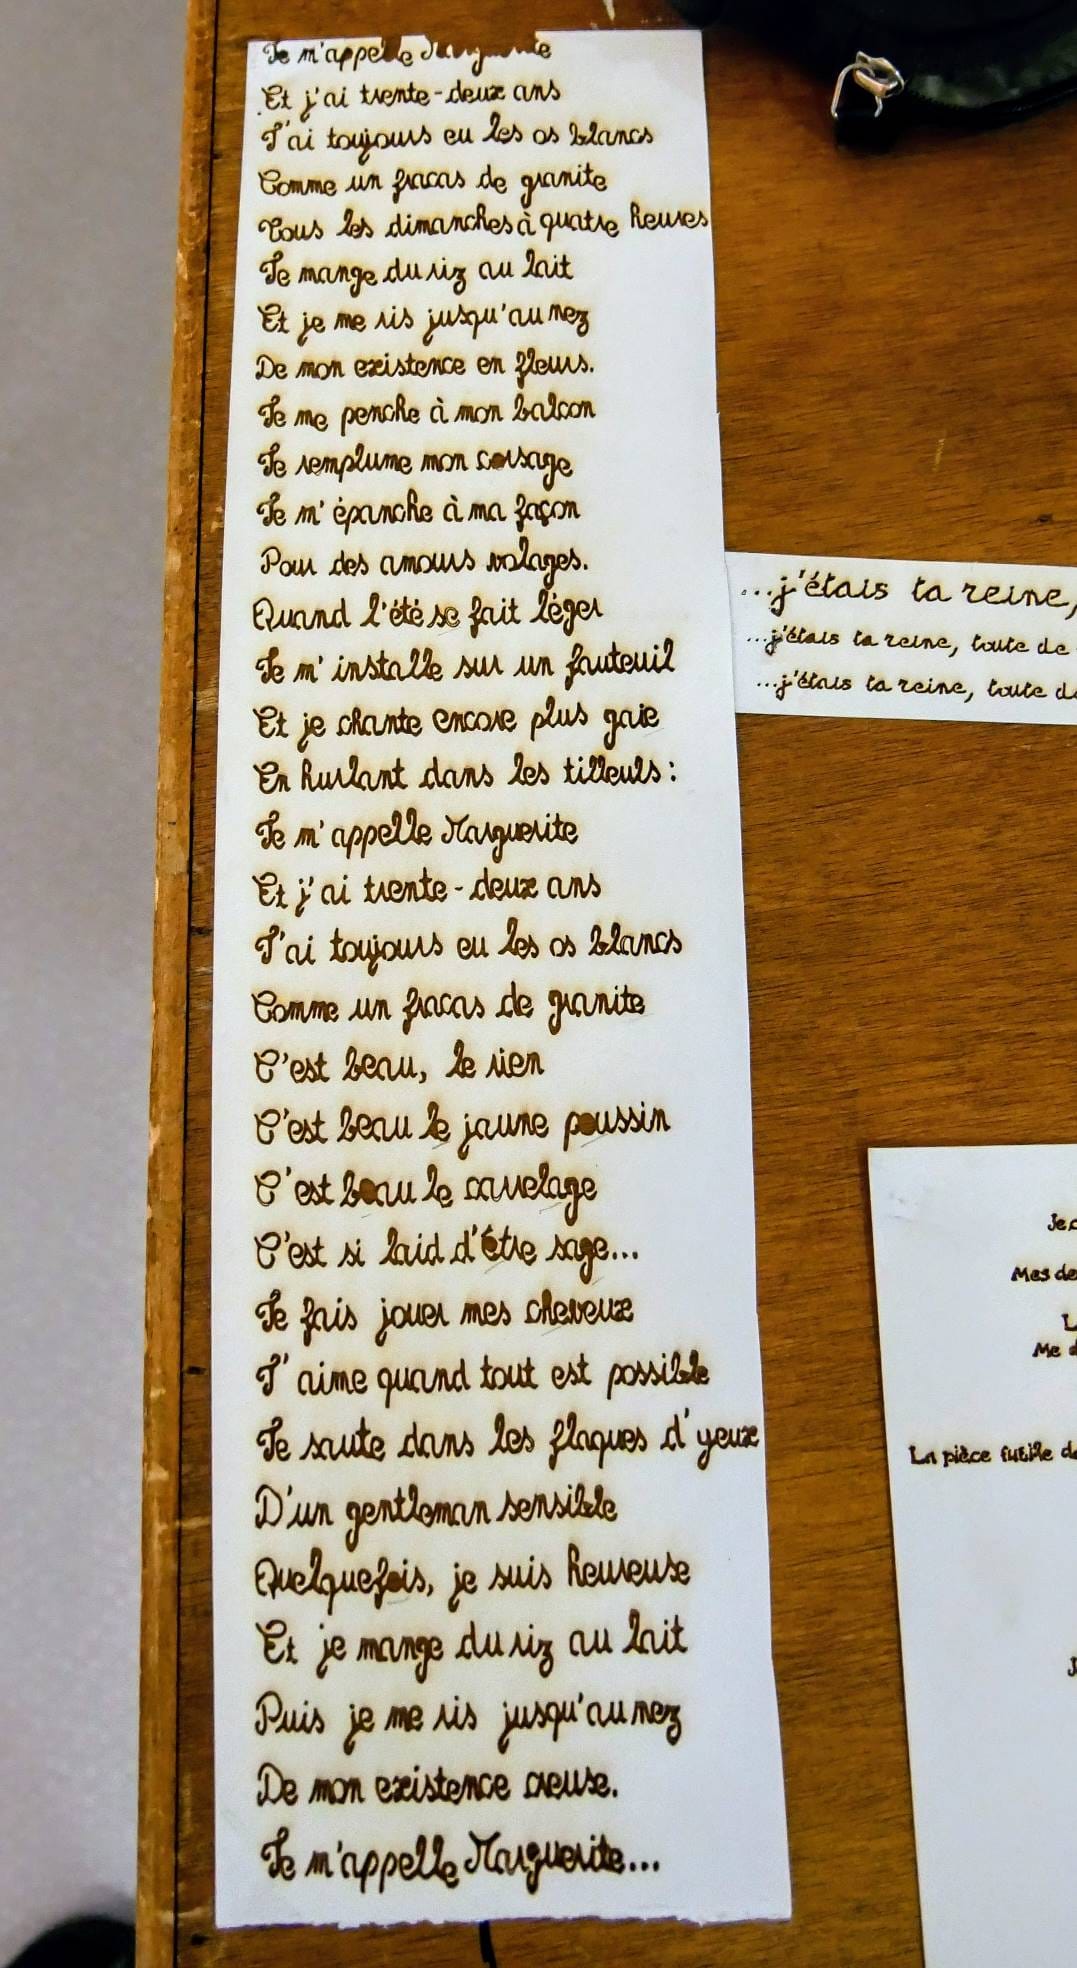 Je m'appelle Marguerite
Et j'ai trente-deux ans
J'ai toujours eu les os blancs
Comme un fracas de granite
Tous les dimanches à quatre heures
Je mange du riz au lait
Et je me ris jusqu'au nez
De mon existence en fleurs.
Je me penche à mon balcon
Je remplume mon corsage
Je m'épanche à ma façon
Pour des amours volages.
Quand l'été se fait léger
Je m'installe sur un fauteuil
Et je chante encore plus gaie
En hurlant dans les tilleuls :
Je m'appelle Marguerite
Et j'ai trente-deux ans
J'ai toujours eu les os blancs
Comme un fracas de granite
C'est beau, le rien
C'est beau le jaune poussin
C'est beau le carrelage
C'est si laid d'être sage...
Je fais jouer mes cheveux
J'aime quand tout est possible
Je saute dans les flaques d'yeux
D'un gentleman sensible
Quelquefois, je suis heureuse
Et je mange du riz au lait
Puis je me ris jusqu'au nez
De mon existence creuse.
Je m'appelle Marguerite...
...j'étais ta reine,
...j'étais ta reine, toute de
...j'étais ta reine, toute d
Je
Mes de
L
Me d
La pièce futile d
J